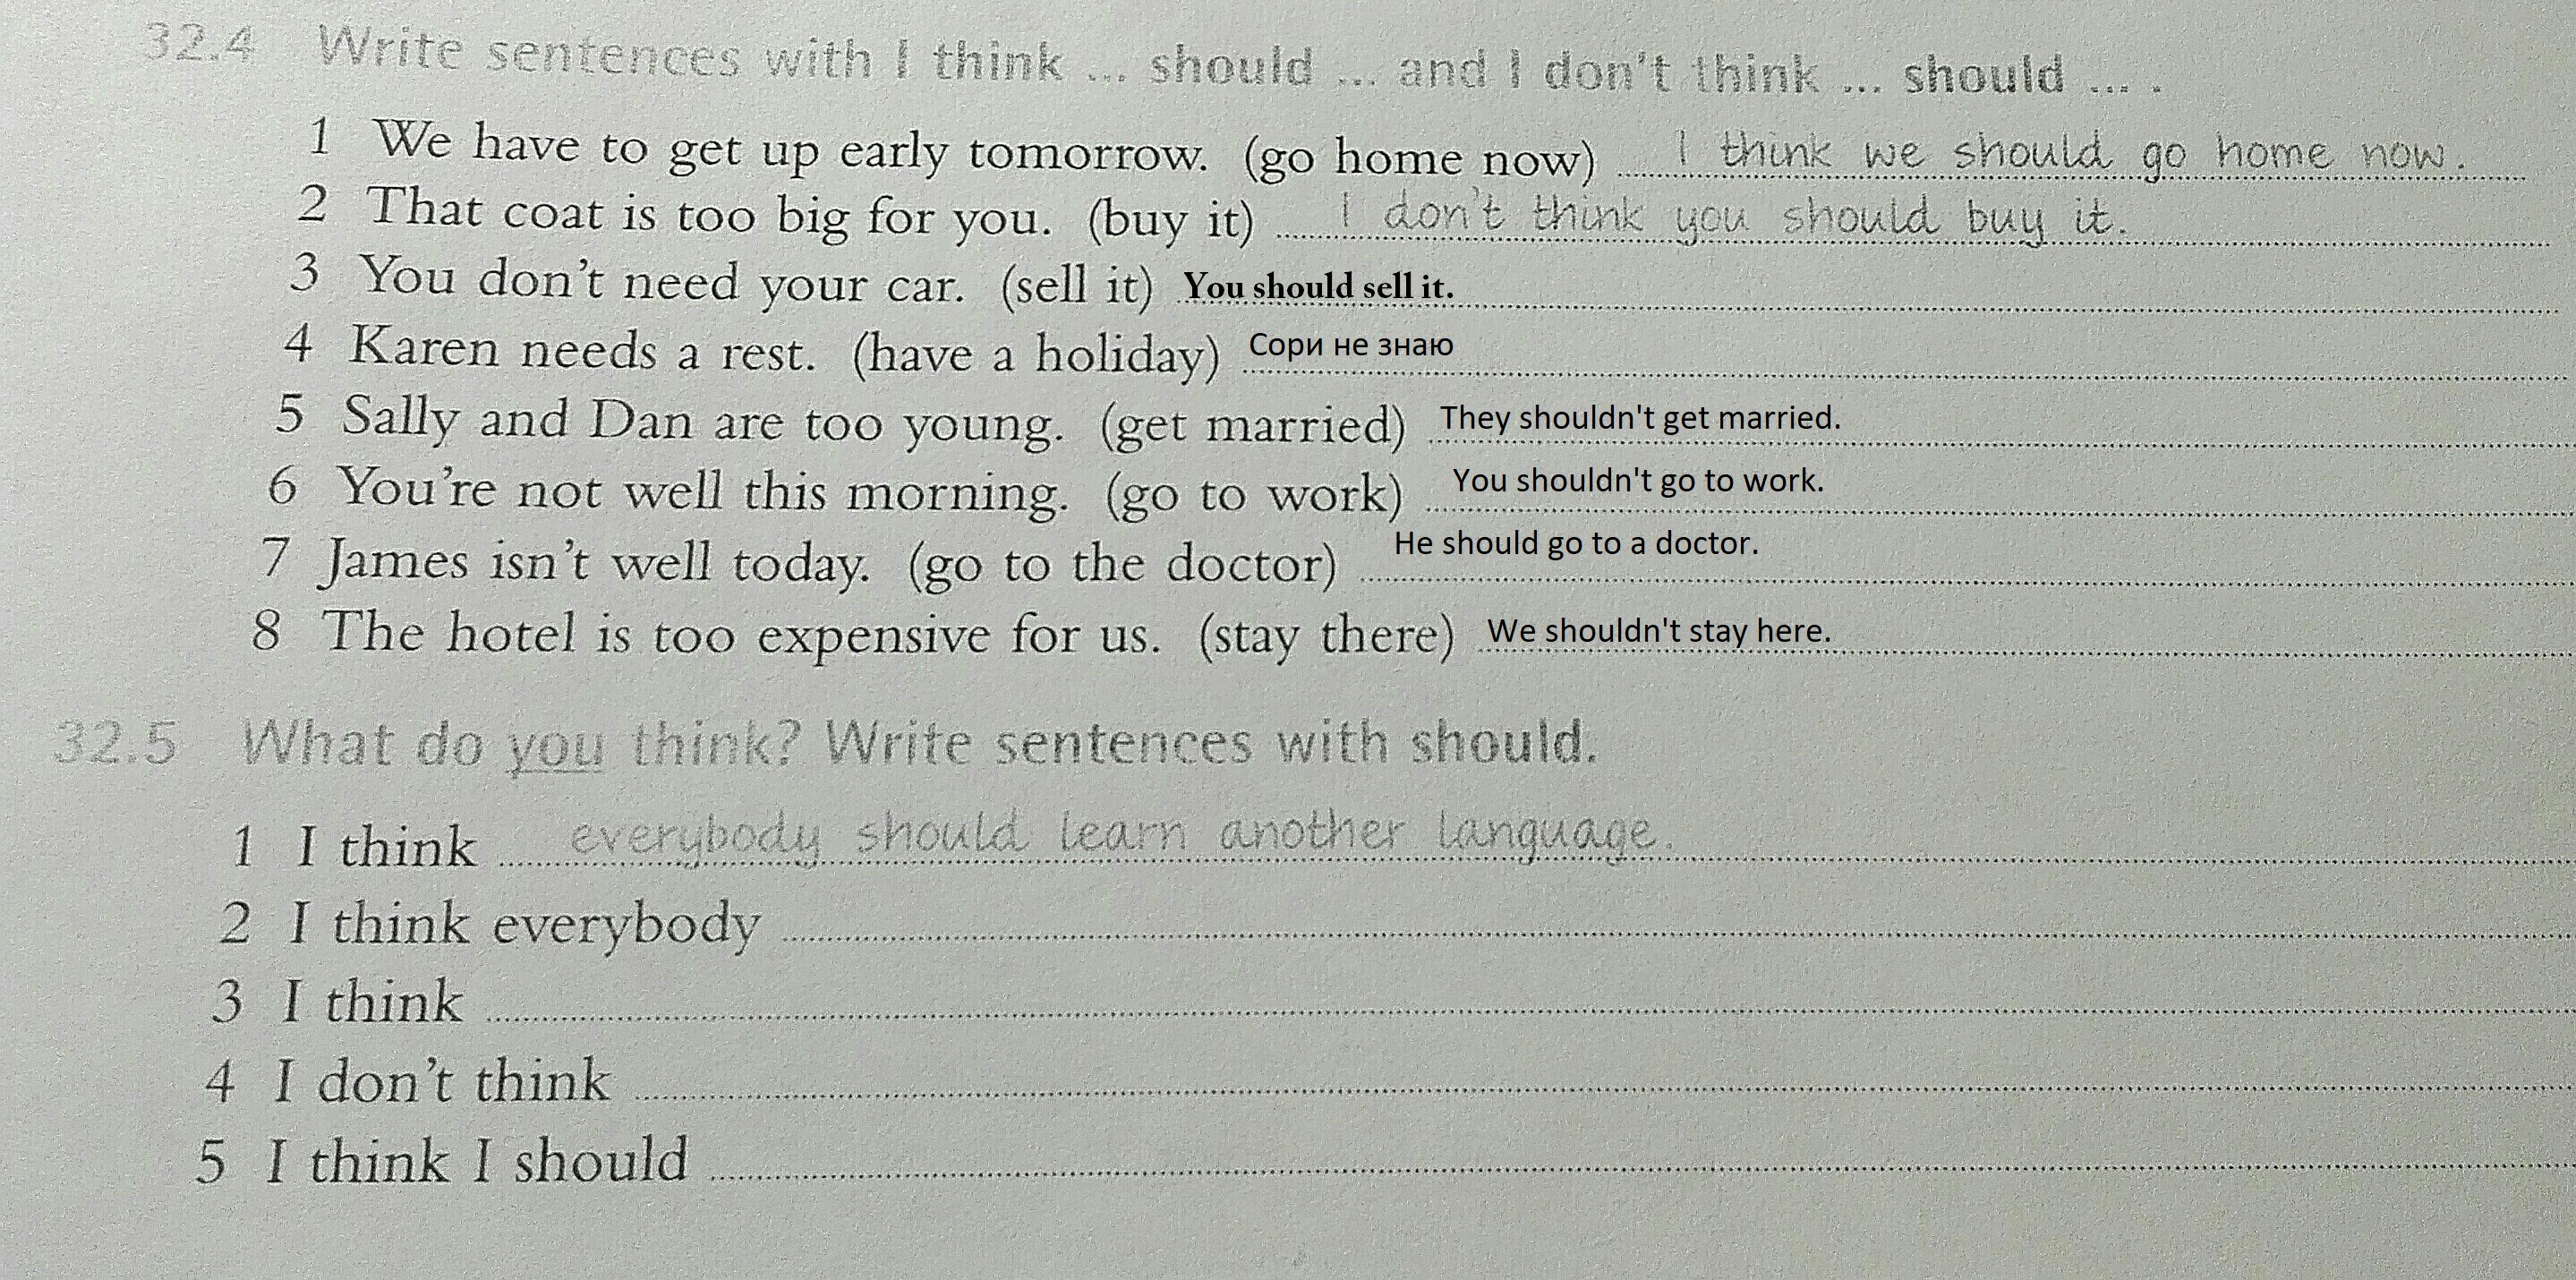 32.4 Write sentences with I think ... should ... and I don't think ... should ... .
1 We have to get up early tomorrow. (go home now) I think we should go home now.
2 That coat is too big for you. (buy it) I don't think you should buy it.
3 You don't need your car. (sell it) You should sell it.
4 Karen needs a rest. (have a holiday) Сори не знаю
5 Sally and Dan are too young. (get married) They shouldn't get married.
6 You're not well this morning. (go to work) You shouldn't go to work.
7 James isn't well today. (go to the doctor) He should go to a doctor.
8 The hotel is too expensive for us. (stay there) We shouldn't stay here.
32.5 What do you think? Write sentences with should.
1 I think everybody should learn another language.
2 I think everybody
3 I think
4 I don't think
5 I think I should